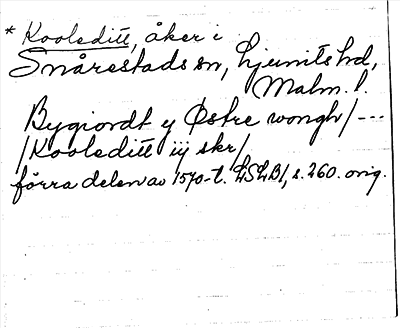 * Kooleditt, åker i
Snårestads sn, Ljunits hd,
Malm. l.
Bygiordt y Østre wongh / ---
/ Kooleditt iij skr /
förra delen av 1570-t. LSLB1, s. 260. orig.